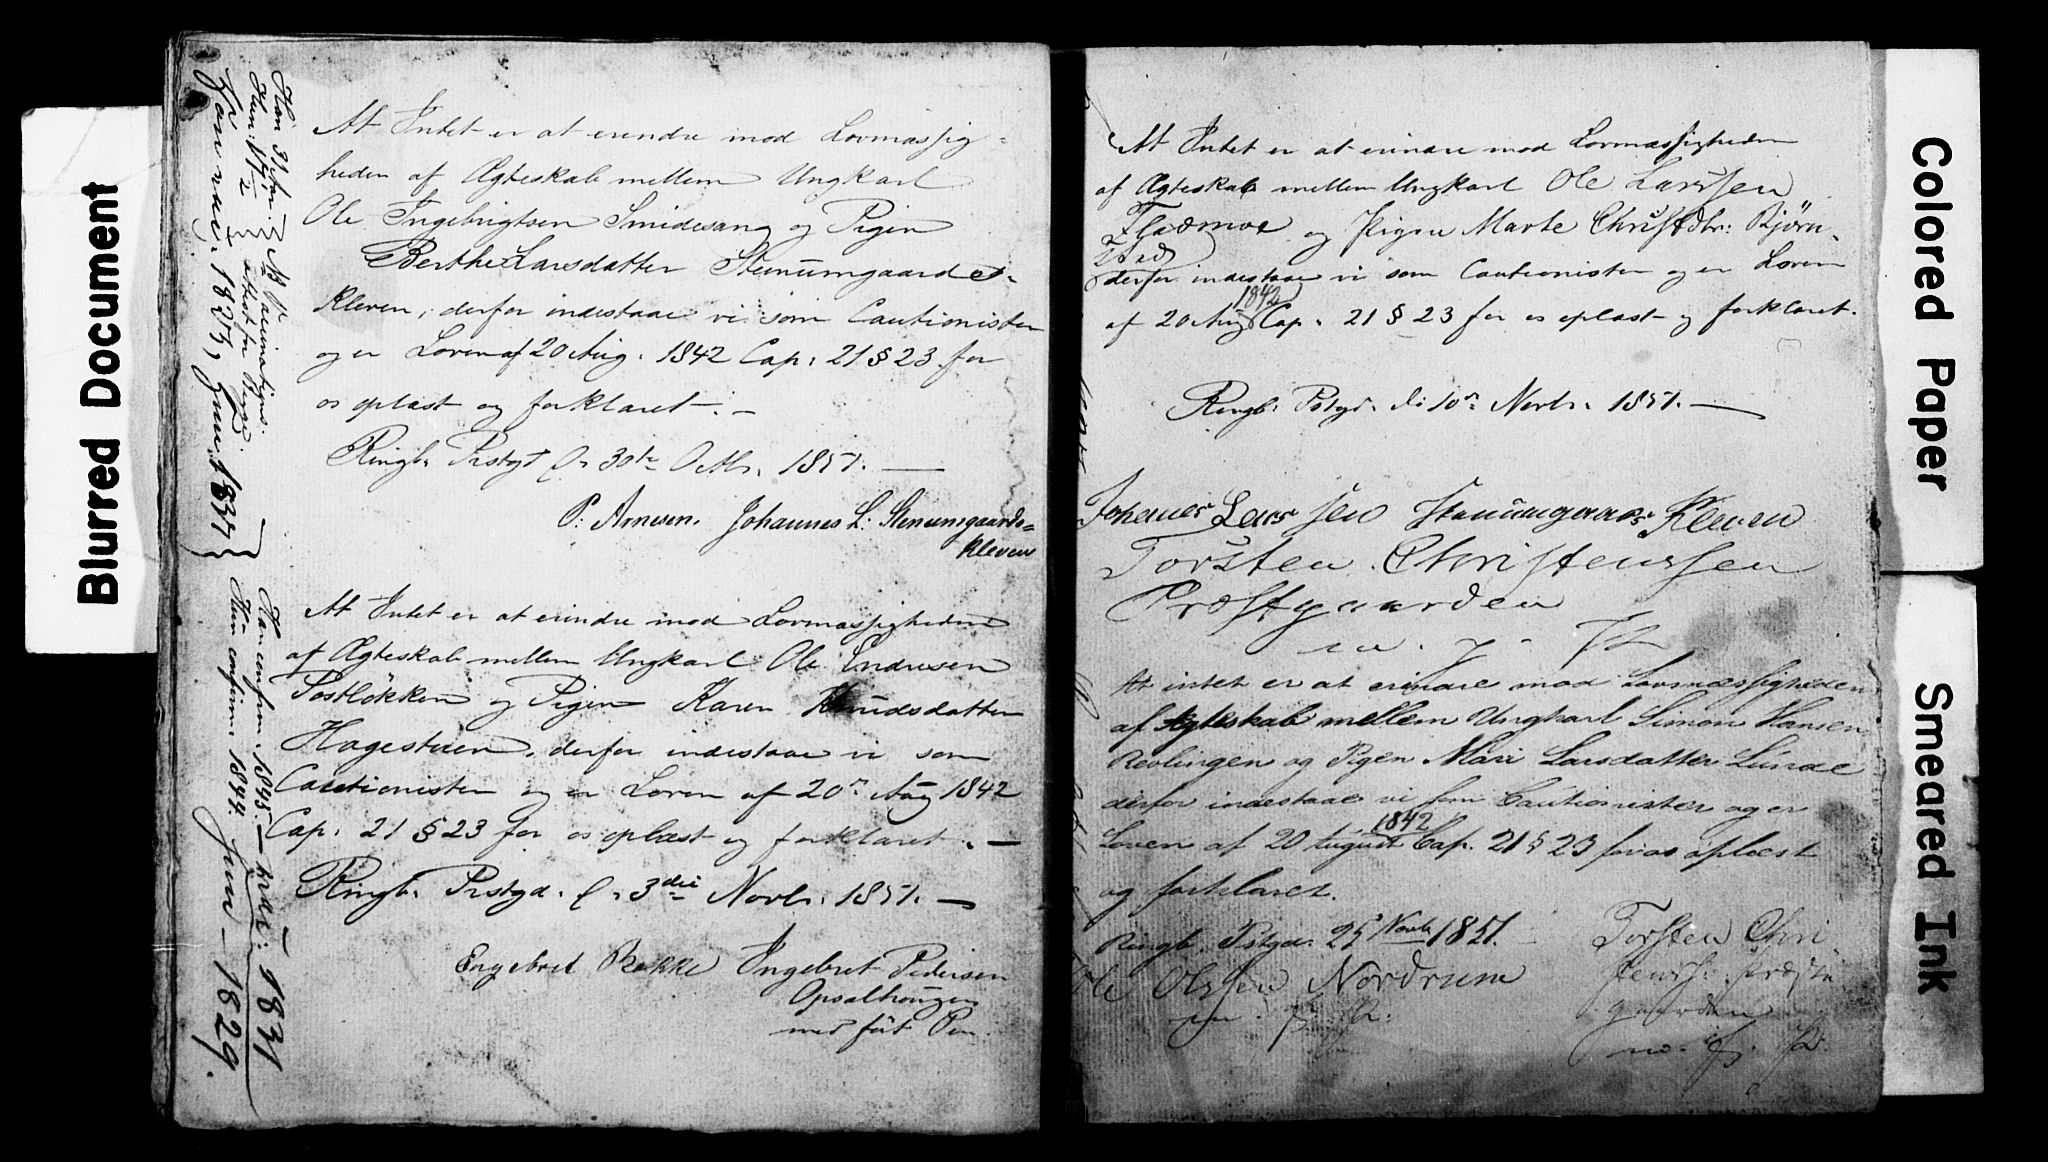 Blurred Document
At Intet er at erindre mod Lovmæssig-
heden af Ægteskab mellem Ungkarl
Ole Ingebrigtsen Smidesang og Pigen
Berthe Larsdatter Stenumgaards-
kleven, derfor indestaae vi som Cautionister
og er Loven af 20 Aug. 1842 Cap. 21 § 23 for
os oplæst og forklaret. —
Ringb. Prstgd d. 30te Octbr. 1857. —
P: Arnesen. Johannes L: Stenumsgaards=
kleven
At Intet er at erindre mod Lovmæssigheden
af Ægteskab mellem Ungkarl Ole Endresen
Postløkken og Pigen Karen Knudsdatter
Hagestuen, derfor indestaae vi som
Cautionister og er Loven af 20de Aug 1842
Cap. 21 § 23 for os oplæst og forklaret. —
Ringb. Prstgd. d. 3die Novbr. 1857. —
Engebret Bakke Ingebret Pedersen
Opsalhougen
med ført Pen.
Han confirm. 1845. — 1831
Hun confirm. 1844. 1829.
At Intet er at erindre mod Lovmæssigheden
af Ægteskab mellem Ungkarl Ole Larssen
Flaamoe og Pigen Marte Christdtr: Bjørn-
derfor indestaae vi som Cautionister og er Loven
af 20 Aug 1842 Cap. 21 § 23 for os oplæst og forklaret.
Ringb. Pstgd. d. 10de Novbr. 1857. —
Johanes Larssen Stenumgaards Kleven
Torsten Christenssen
Præstgaarden
m. f. P.
At intet er at erindre mod Lovmæssigheden
af Ægteskab mellem Ungkarl Simon Hansen
Revlingen og Pigen Mari Larsdatter Lunde
derfor indestaae vi som Cautionister og er
Loven af 20 August 1842 Cap. 21 § 23 for os oplæst
og forklaret.
Ringb. Pstgd. 25 Novb 1857.
Ole Olssen Nordrum
m. f. P.
Torsten Chri-
stenss: Præst-
gaarden
m. f. P.
Colored Paper
Smeared Ink